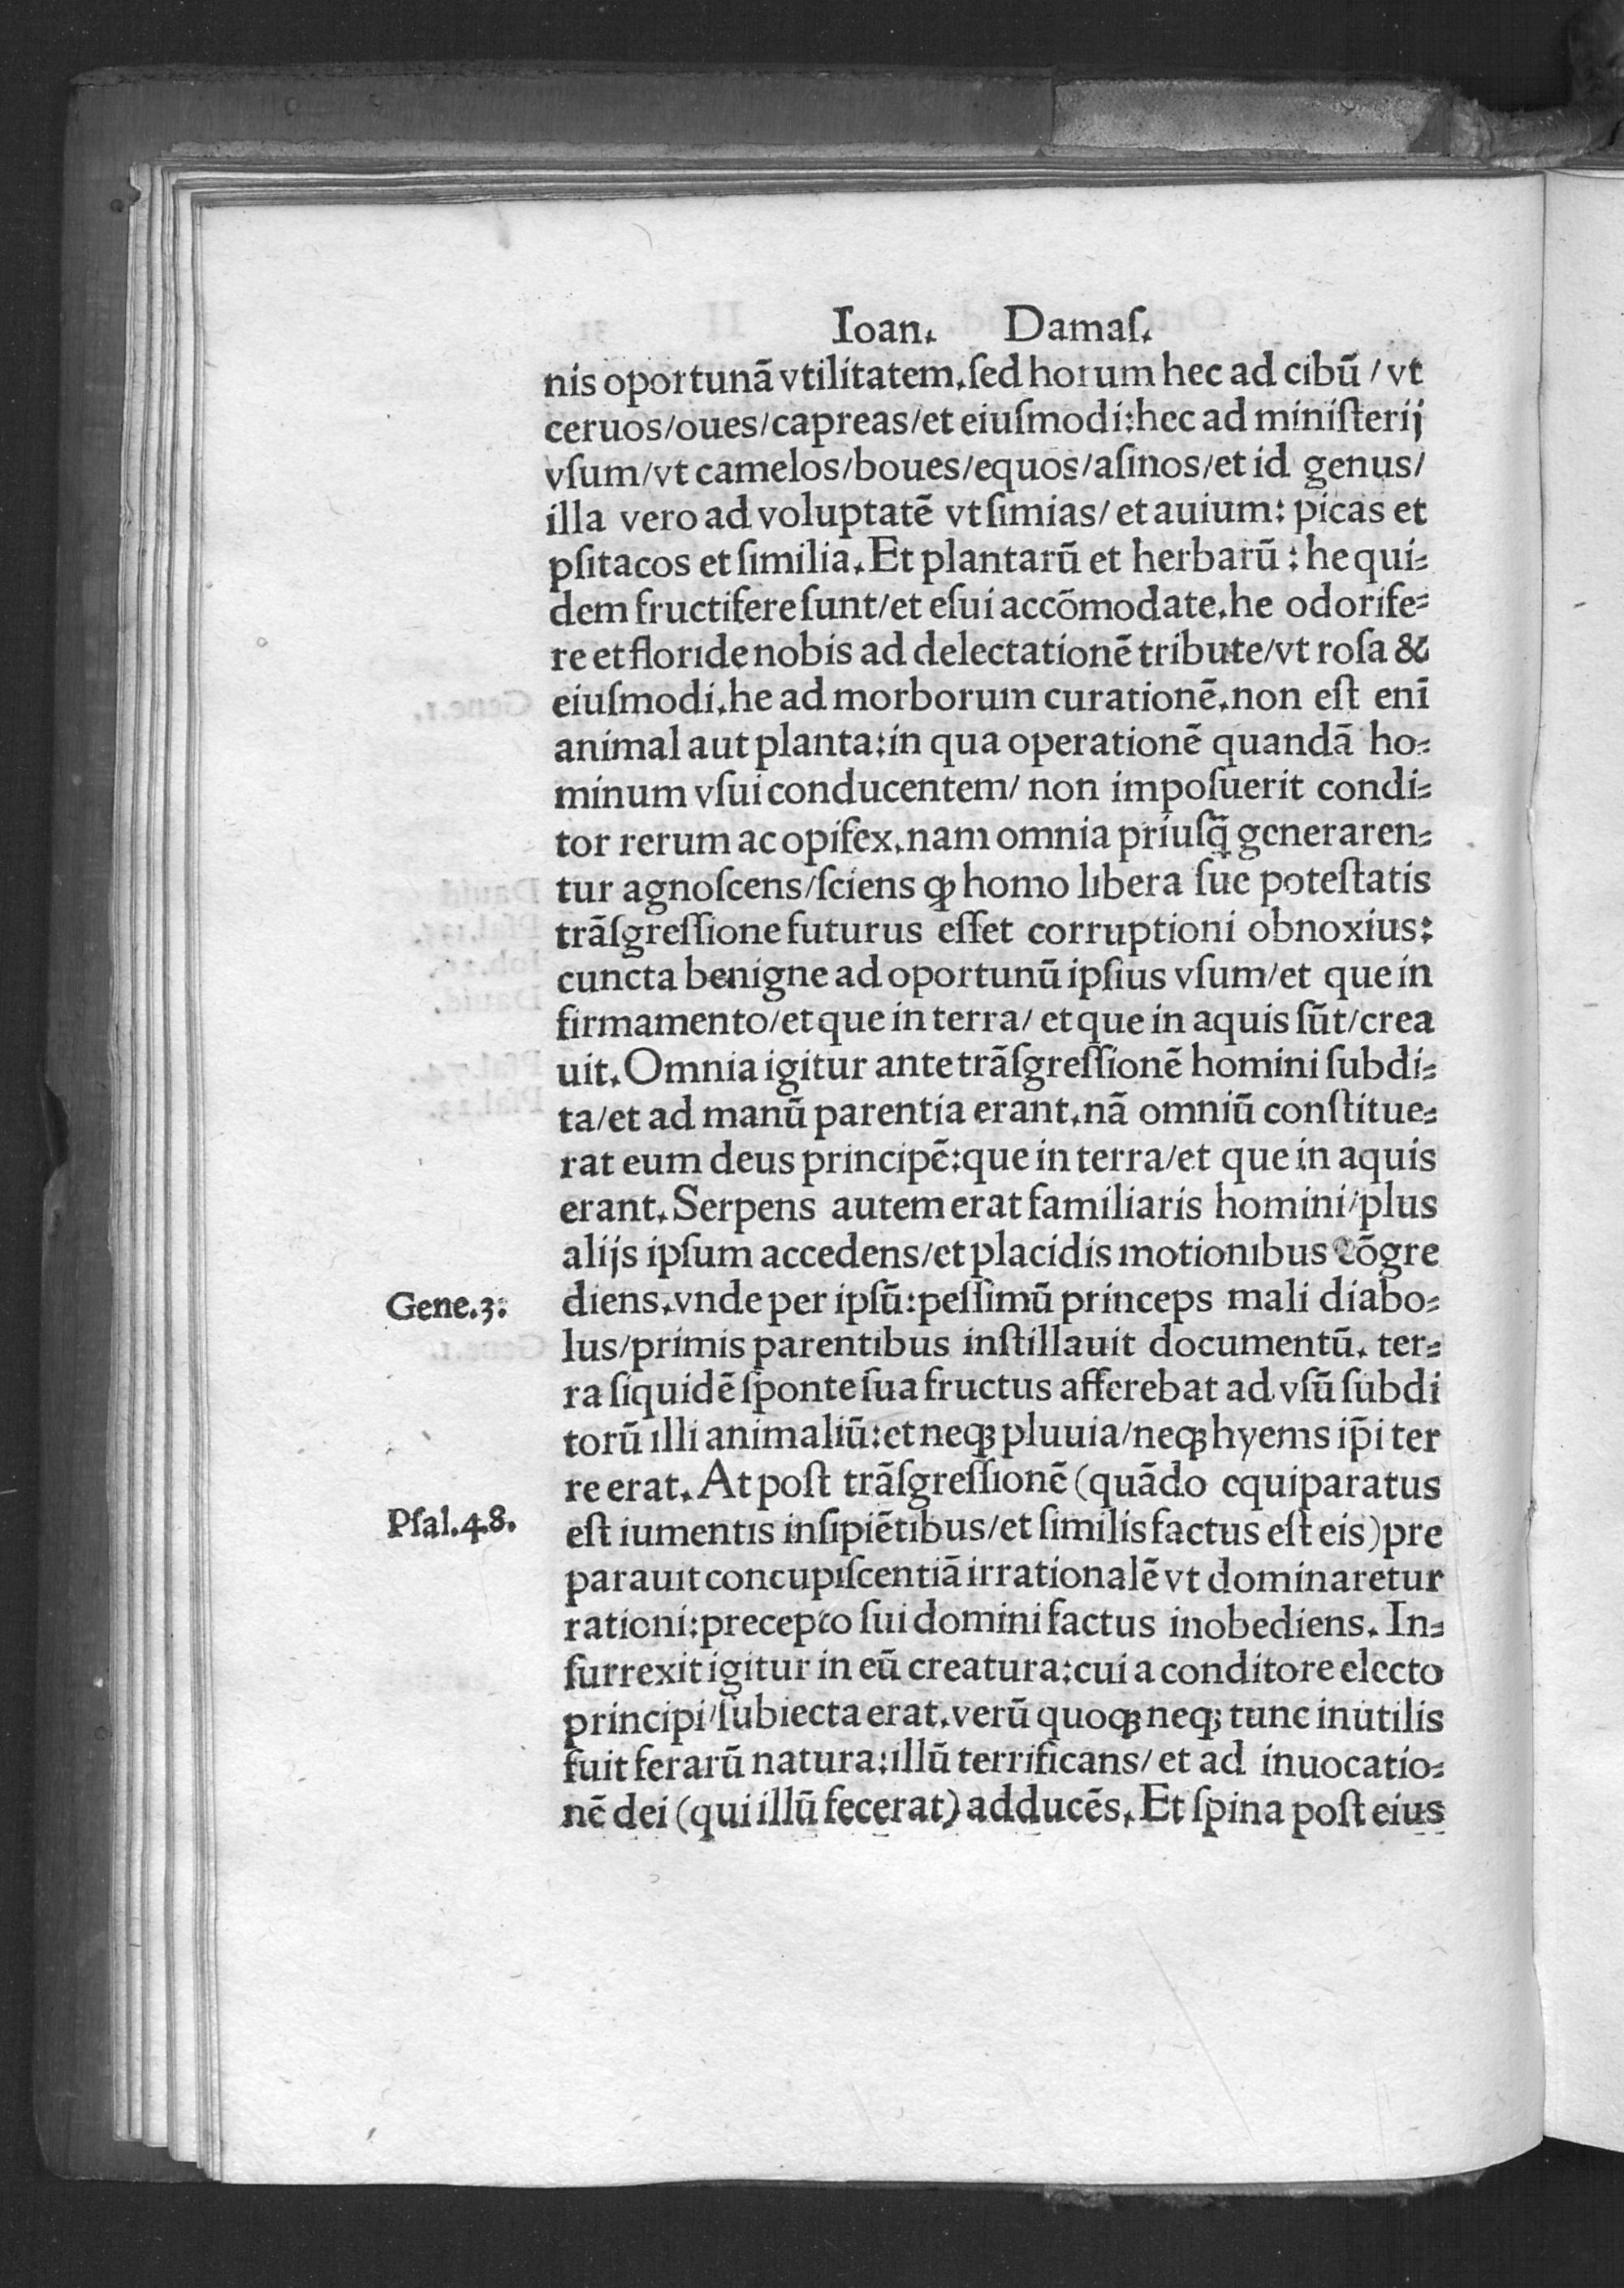 Ioan. Damaſ.
nis oportunã vtilitatem. ſed horum hec ad cibũ / vt
ceruos/oues/capreas/et eiuſmodi: hec ad miniſterij
vſum/vt camelos/boues/equos/aſinos/et id genus/
illa vero ad voluptatẽ vt ſimias/ et auium: picas et
pſitacos et ſimilia. Et plantarũ et herbarũ: he qui-
dem fructifere ſunt/et eſui accõmodate. he odorife-
re et floride nobis ad delectationẽ tribute/vt roſa &
eiuſmodi. he ad morborum curationẽ. non eſt enĩ
animal aut planta: in qua operationẽ quandã ho-
minum vſui conducentem/ non impoſuerit condi-
tor rerum ac opifex. nam omnia priuſq̃ generaren-
tur agnoſcens/ſciens ꝙ homo libera ſue poteſtatis
trãſgreſſione futurus eſſet corruptioni obnoxius:
cuncta benigne ad oportunũ ipſius vſum/et que in
firmamento/et que in terra/ et que in aquis ſũt/crea
uit. Omnia igitur ante trãſgreſſionẽ homini ſubdi-
ta/et ad manũ parentia erant. nã omniũ conſtitue-
rat eum deus principẽ: que in terra/et que in aquis
erant. Serpens autem erat familiaris homini/plus
alijs ipſum accedens/et placidis motionibus cõgre
Gene.3. diens. vnde per ipſũ: peſſimũ princeps mali diabo-
lus/primis parentibus inſtillauit documentũ. ter-
ra ſiquidẽ ſponte ſua fructus afferebat ad vſũ ſubdi
torũ illi animaliũ: et neqꝫ pluuia/neqꝫ hyems ip̃i ter
re erat. At poſt trãſgreſſionẽ (quãdo equiparatus
Pſal.48. eſt iumentis inſipiẽtibus/et ſimilis factus eſt eis) pre
parauit concupiſcentiã irrationalẽ vt dominaretur
rationi: precepto ſui domini factus inobediens. In-
ſurrexit igitur in eũ creatura: cui a conditore electo
principi/ſubiecta erat. verũ quoqꝫ neqꝫ tunc inutilis
fuit ferarũ natura: illũ terrificans/ et ad inuocatio-
nẽ dei (qui illũ fecerat) adducẽs. Et ſpina poſt eius